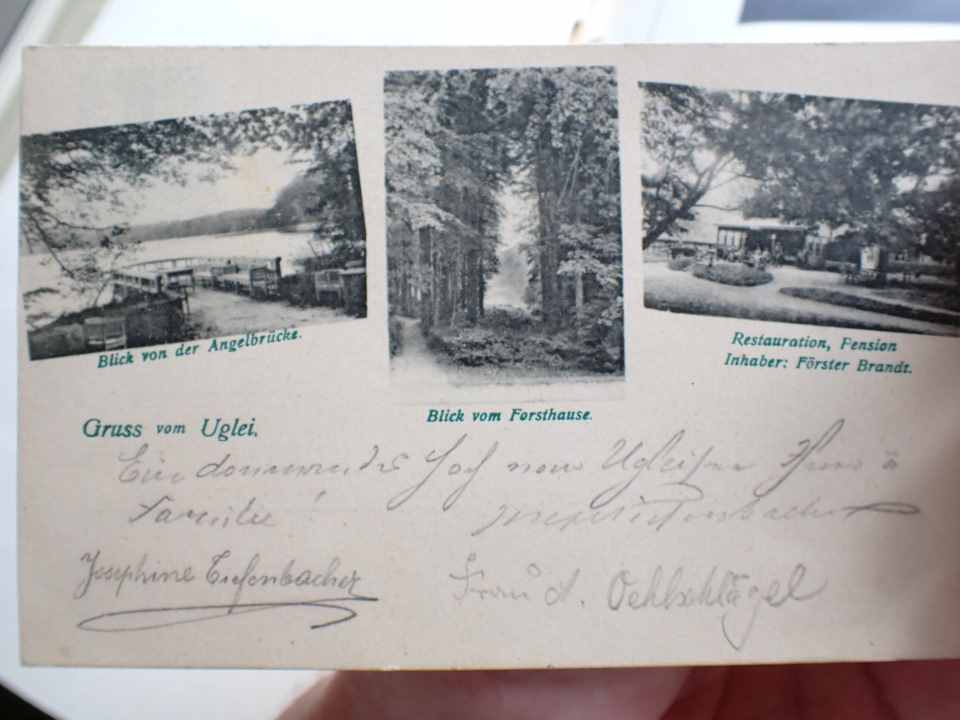 Blick von der Angelbrücke.
Blick vom Forsthause.
Restauration, Pension
Inhaber: Förster Brandt.
Gruss vom Uglei.
Ein donnerndes Hoch vom Ugleisee
Familie
Josephine Tiefenbacher
Frau A. Oehlschlägel